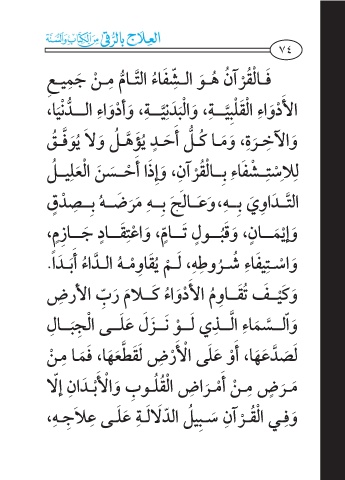 العلاج بالرقى من الكتاب والسنة
٧٤
فَالْقُرْآنُ هُوَ الشِّفَاءُ التَّامُّ مِنْ جَمِيعِ
الأَدْوَاءِ القَلْبِيَّةِ، وَالْبَدَنِيَّةِ، وَأَدْوَاءِ الـدُّنْيَا،
وَالآخِرَةِ، وَمَا كُلُّ أَحَدٍ يُؤَهَّلُ وَلاَ يُوَفَّقُ
لِلاِسْتِشْفَاءِ بِالْقُرْآنِ، وَإِذَا أَحْسَنَ الْعَلِيلُ
التَّدَاوِيَ بِهِ، وَعَالَجَ بِهِ مَرَضَهُ بِصِدْقٍ
وَإِيْمَانٍ، وَقَبُولٍ تَامٍّ، وَاعْتِقَادٍ جَازِمٍ،
وَاسْتِيفَاءِ شُرُوطِهِ، لَمْ يُقَاوِمْهُ الدَّاءُ أَبَداً.
وَكَيْفَ تُقَاوِمُ الأَدْوَاءُ كَلامَ رَبِّ الأَرضِ
وَالسَّمَاءِ الَّذِي لَوْ نَزَلَ عَلَى الْجِبَالِ
لَصَدَّعَهَا، أَوْ عَلَى الْأَرْضِ لَقَطَّعَهَا، فَمَا مِنْ
مَرَضٍ مِنْ أَمْرَاضِ الْقُلُوبِ وَالْأَبْدَانِ إِلّا
وَفِي الْقُرْآنِ سَبِيلُ الدَّلَالَةِ عَلَى عِلاَجِهِ،